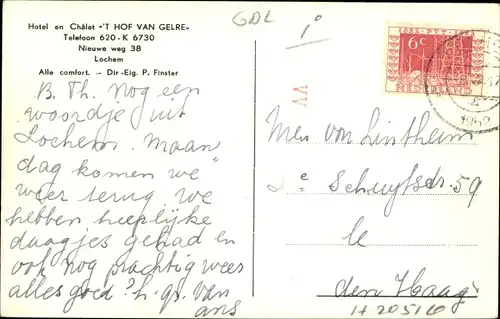 Hotel en Châlet "'T HOF VAN GELRE"
Telefoon 620 - K 6730
Nieuwe weg 38
Lochem
Alle comfort. – Dir-Eig. P. Finster
B. Th. Nog een
woordje uit
Lochem. Maan
dag komen we
weer terug. We
hebben heerlijke
daagjes gehad en
ook nog prachtig weer
alles goed? h. gr. van
ans
GDL
6c
NEDERLAND
1952
VV
Mev von Lintheim
59
den Haag
H 20516